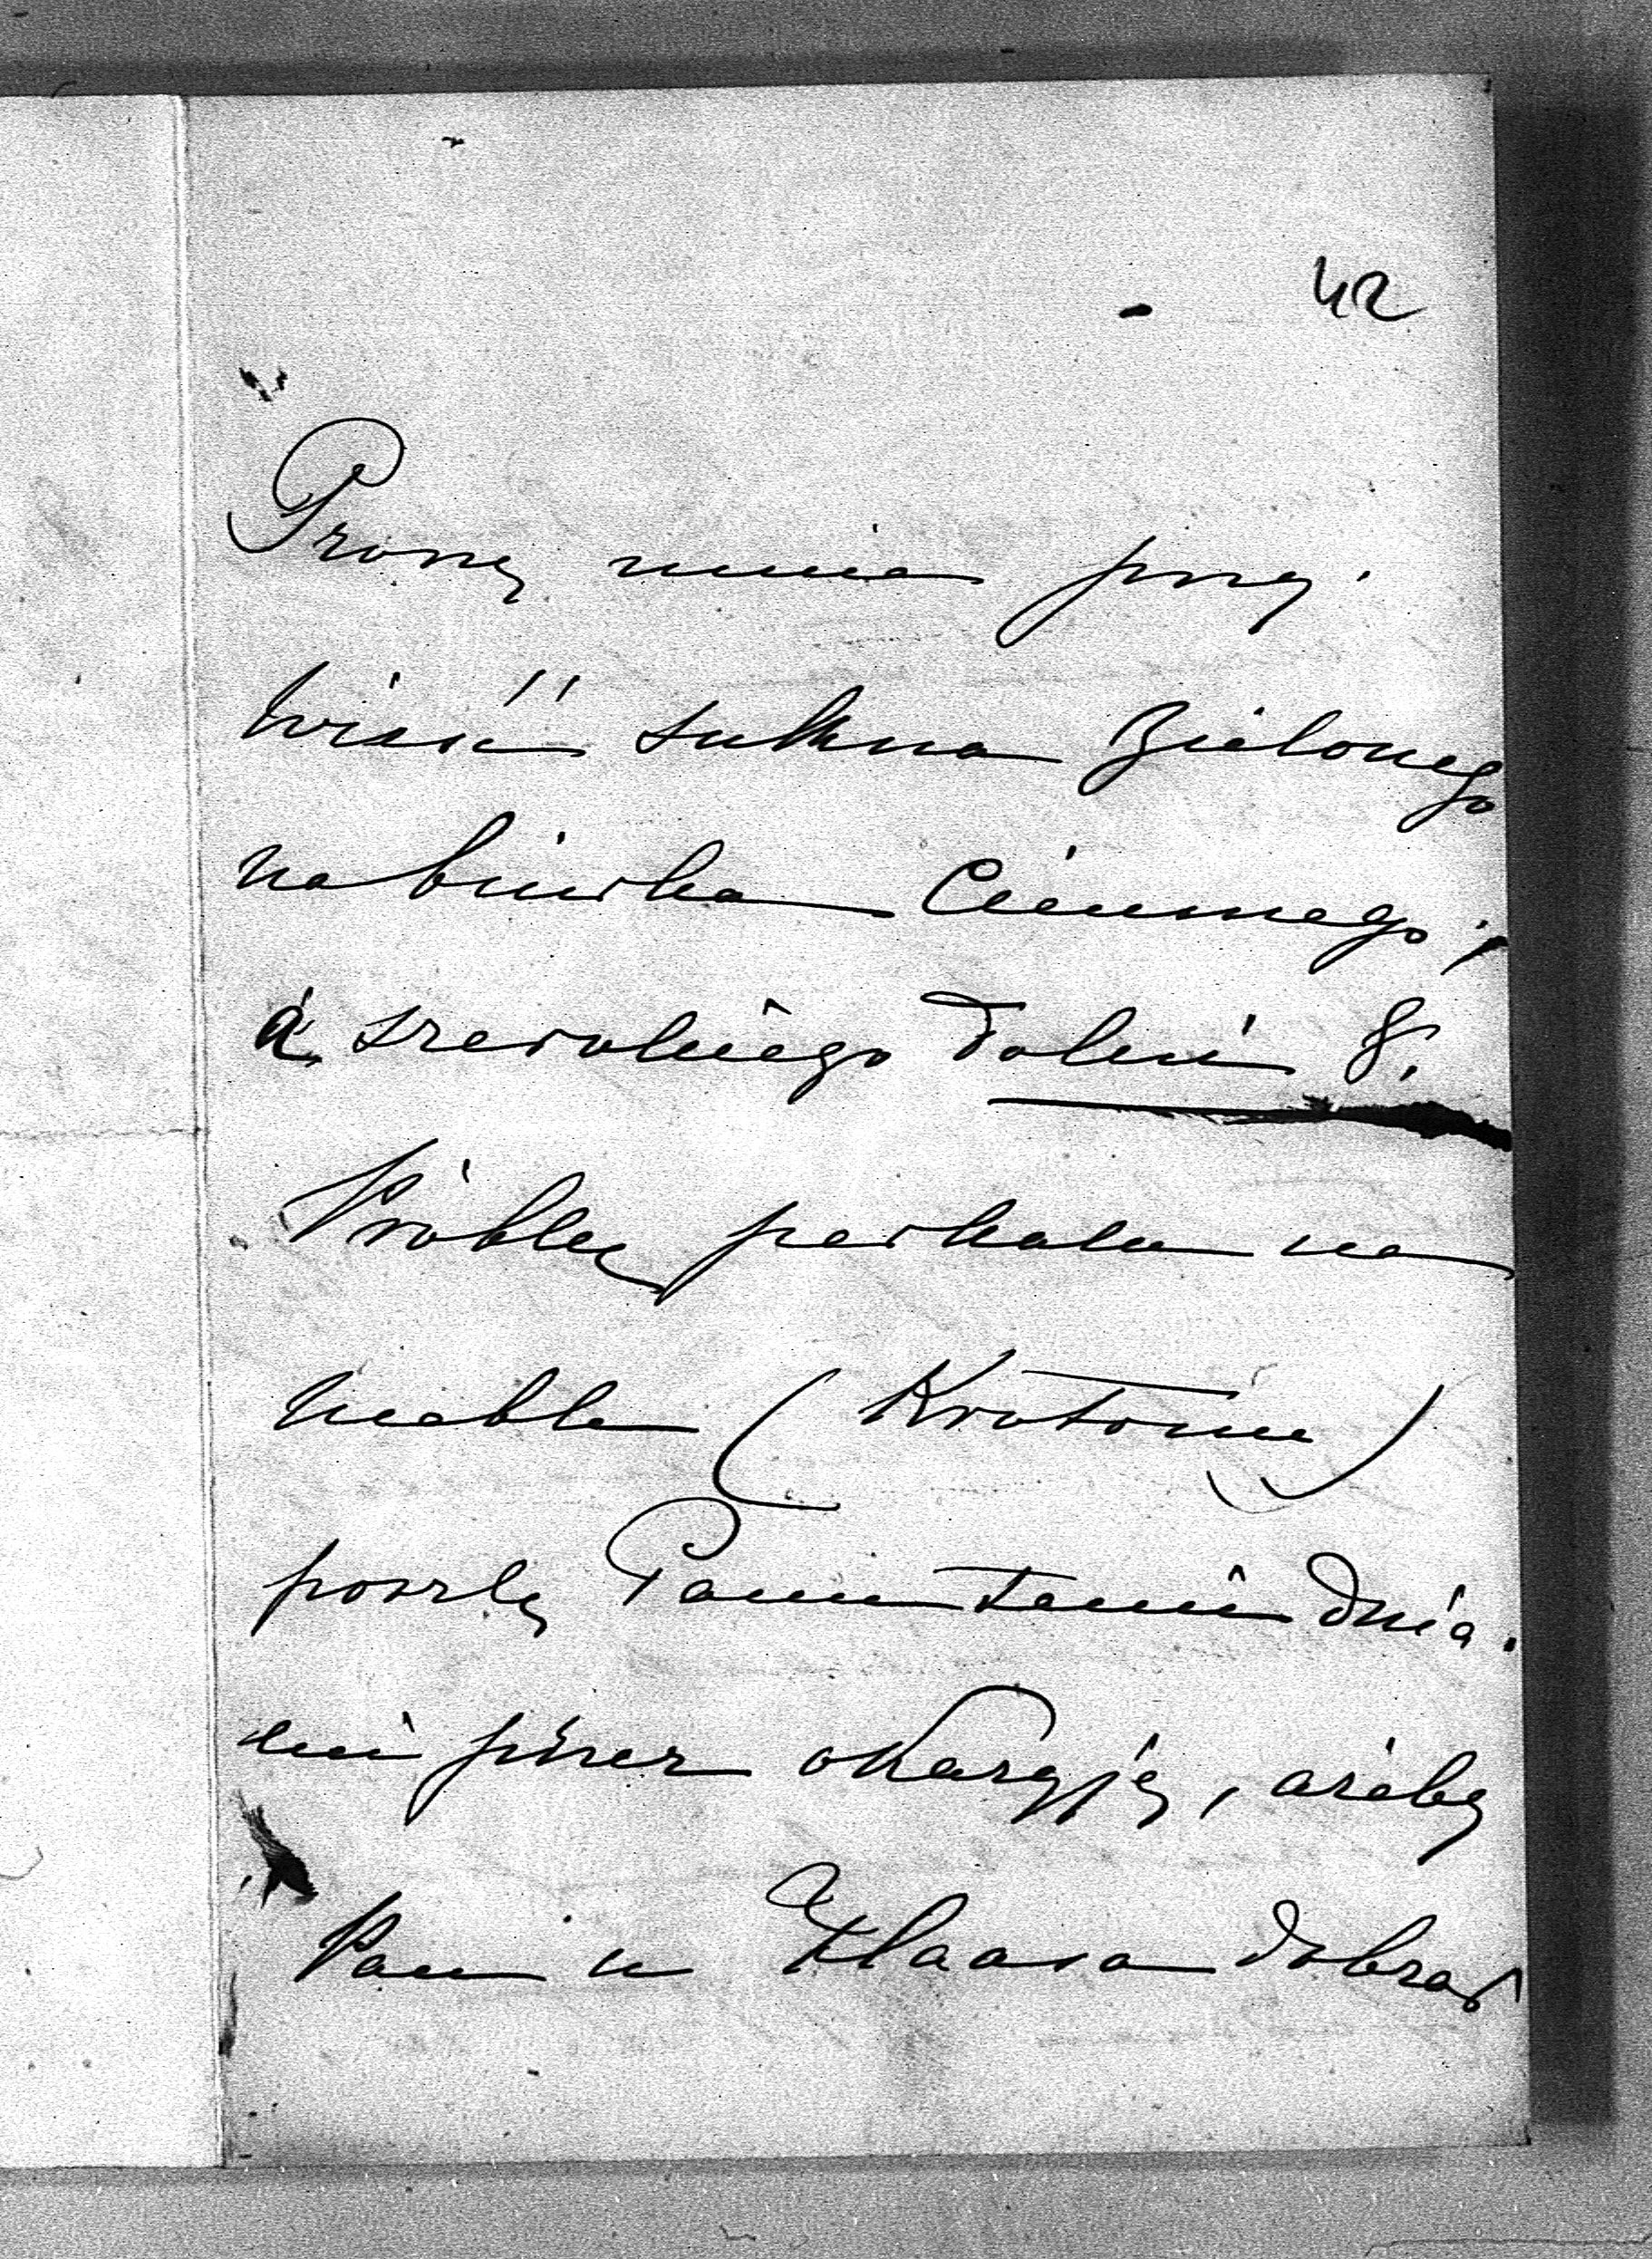 42
Proszę mnie przy-
wieść sukna Zielonego
na biurka Ciemnego,
a szerokiego dołoki 8.
Próbkę perkalu na
meble (Kretonu)
poszlę Panu temi dnia-
mi przez okazyję, ażeby
Pan u Haasa dobrał